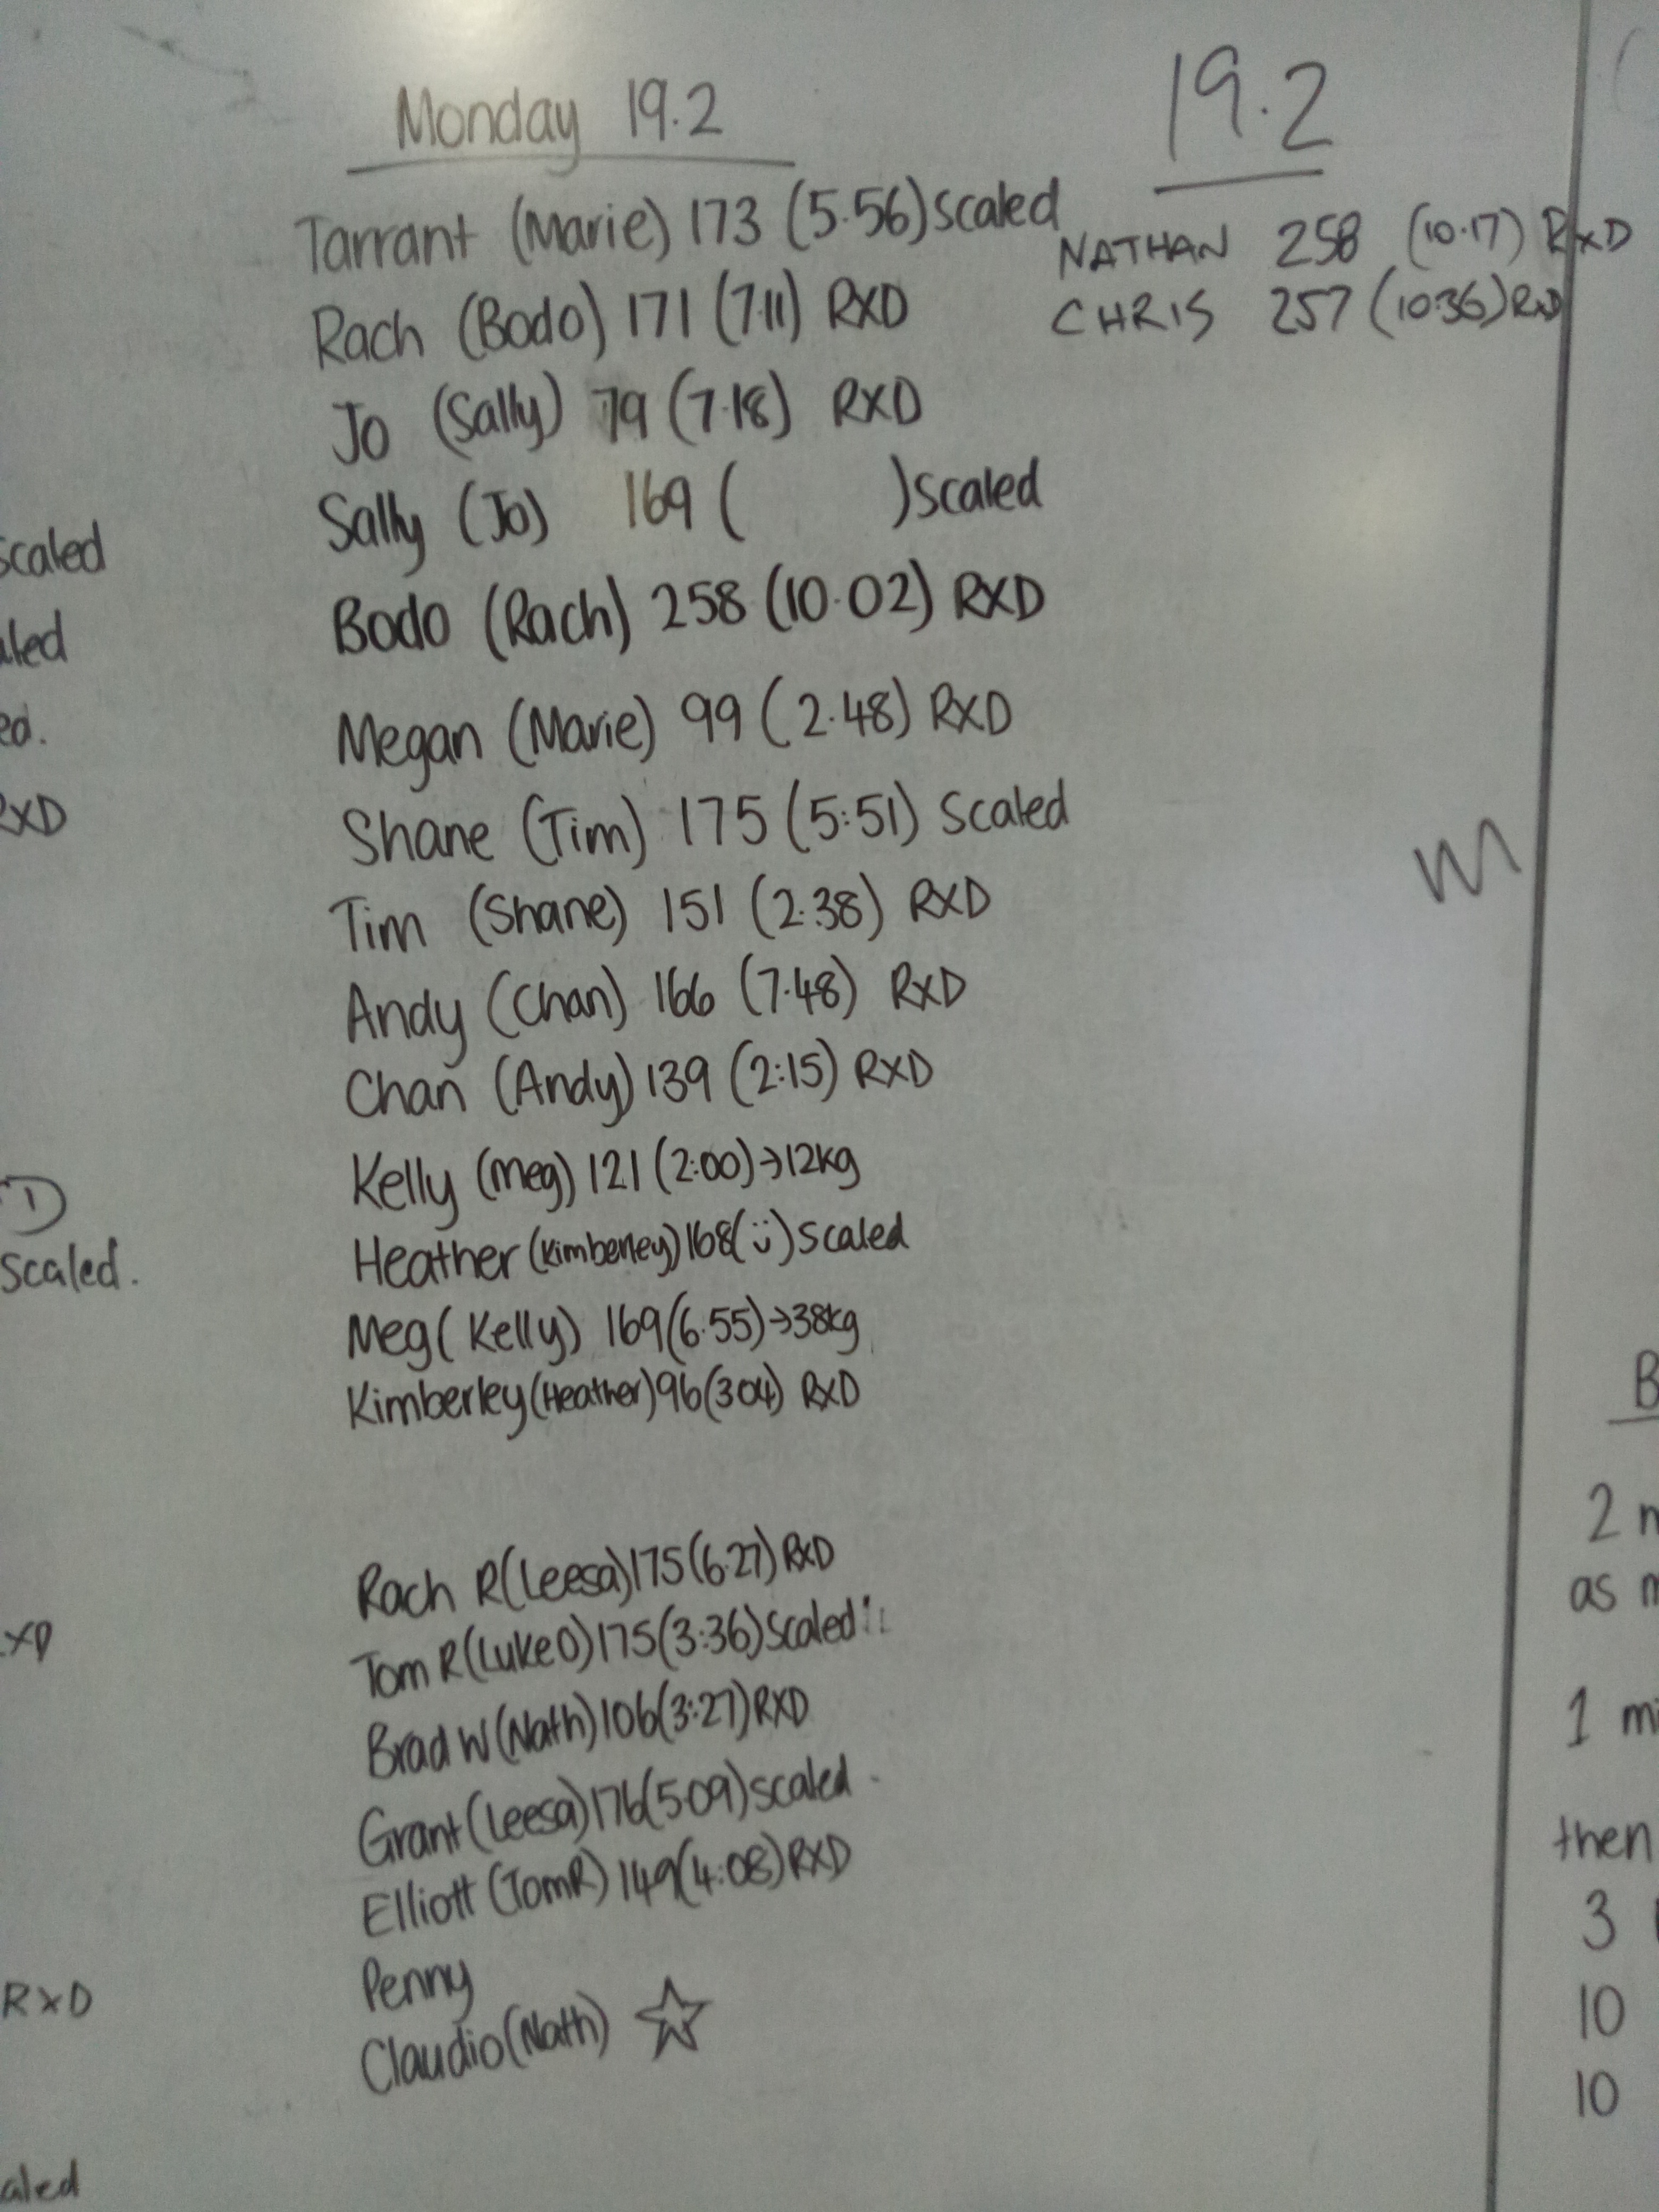 Monday 19.2
Tarrant (Marie) 173 (5.56) scaled
Rach (Bodo) 171 (7.11) RXD
Jo (Sally) 79 (7.18) RXD
Sally (Jo) 169 ( ) scaled
Bodo (Rach) 258 (10.02) RXD
Megan (Marie) 99 (2.48) RXD
Shane (Tim) 175 (5:51) Scaled
Tim (Shane) 151 (2.38) RXD
Andy (Chan) 166 (7.48) RXD
Chan (Andy) 139 (2:15) RXD
Kelly (Meg) 121 (2:00) → 12kg
Heather (Kimberley) 168 (ü) scaled
Meg (Kelly) 169 (6.55) → 38kg
Kimberley (Heather) 96 (304) RXD
Rach R (Leesa) 175 (6.27) RXD
Tom R (Luke O) 175 (3:36) Scaled
Brad W (Nath) 106 (3:27) RXD
Grant (Leesa) 176 (5.09) scaled.
Elliott (Tom R) 149 (4:08) RXD
Penny
Claudio (Nath) ☆
19.2
NATHAN 258 (10.17) RXD
CHRIS 257 (10:36) RXD
scaled
RXD
scaled.
RXD
B
2
as
1
then
3
10
10